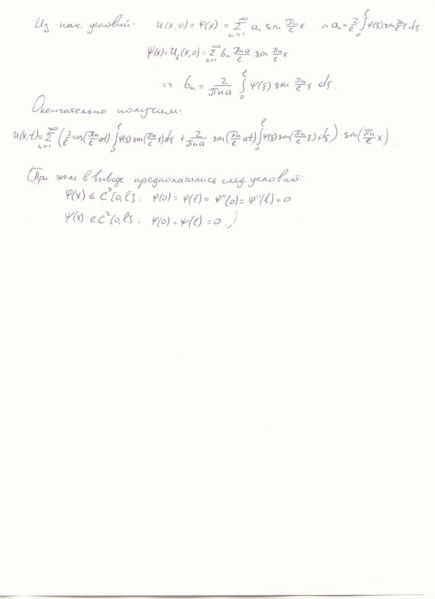 Из нач. условий: u(x,0) = φ(x) = ∑_{n=1}^{∞} aₙ sin (πn/ℓ)x ⇒ aₙ = (2/ℓ) ∫₀^ℓ φ(ξ) sin (πn/ℓ)ξ dξ
ψ(x) = Uₜ(x,0) = ∑_{n=1}^{∞} bₙ (πna/ℓ) sin (πn/ℓ)x
⇒ bₙ = (2/πna) ∫₀^ℓ ψ(ξ) sin (πn/ℓ)ξ dξ
Окончательно получим:
u(x,t) = ∑_{n=1}^{∞} ((2/ℓ) cos((πn/ℓ)at) ∫₀^ℓ φ(ξ) sin((πn/ℓ)ξ) dξ + (2/πna) sin((πn/ℓ)at) ∫₀^ℓ ψ(ξ) sin((πn/ℓ)ξ) dξ) sin((πn/ℓ)x).
(При этом в выводе предполагались след. условия:
φ(x) ∈ C³[0,ℓ], φ(0) = φ(ℓ) = φ''(0) = φ''(ℓ) = 0
ψ(x) ∈ C²[0,ℓ], ψ(0) = ψ(ℓ) = 0.)